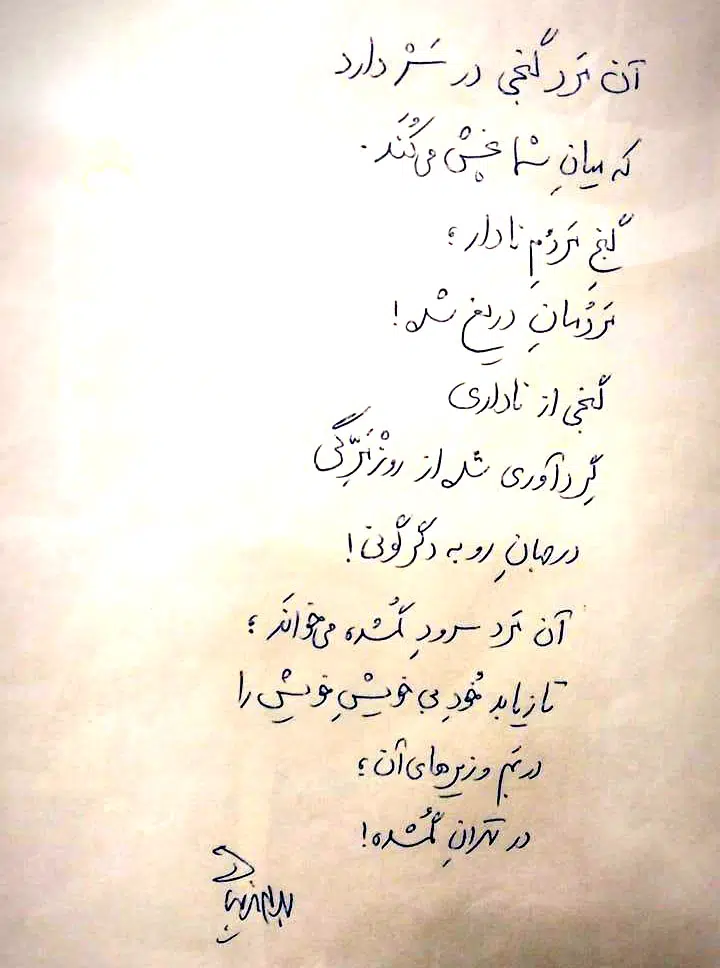 آن مَرد گنجی در سَرْ دارد
که میانِ شما پخش می‌کُنَد.
گنجِ مَردُمِ نادار؛
مَردُمانِ دریغ شده!
گنجی از ناداری
گِردآوری شده از روزْمَرّگی
در جهانِ رو به دگرگونی!
آن مَرد سرودِ گُمشده می‌خوانَد؛
تا زیابد خُودِ بی خویشِ خویش را
در بَم و زیرهای آن؛
در تهرانِ گُمشده!
بهرام بیضایی